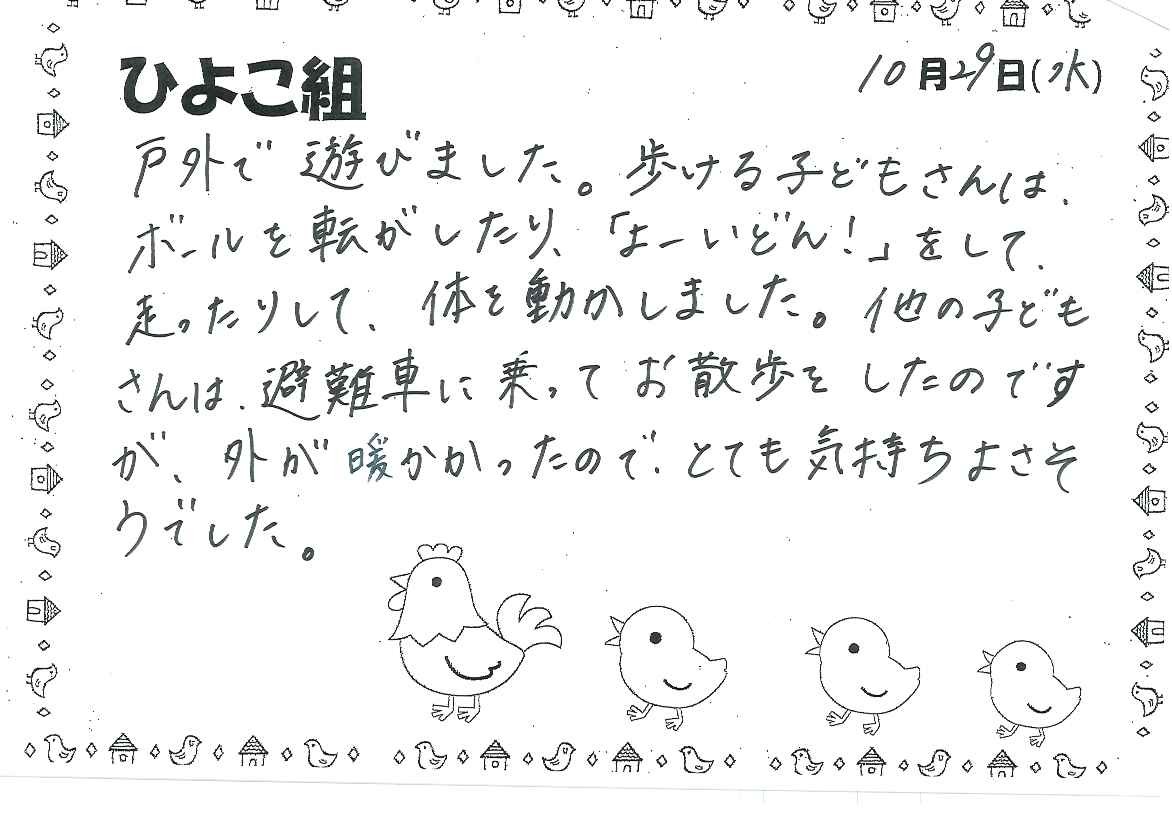 ひよこ組
10月29日(水)
戸外で遊びました。歩ける子どもさんは、
ボールを転がしたり、「よーいどん!」をして、
走ったりして、体を動かしました。他の子ども
さんは、避難車に乗ってお散歩をしたのです
が、外が暖かかったので、とても気持ちよさそ
うでした。